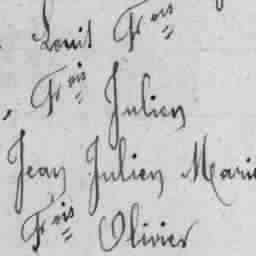 Louis Fois
Fois Julien
Jean Julien Marie
Fois Olivier